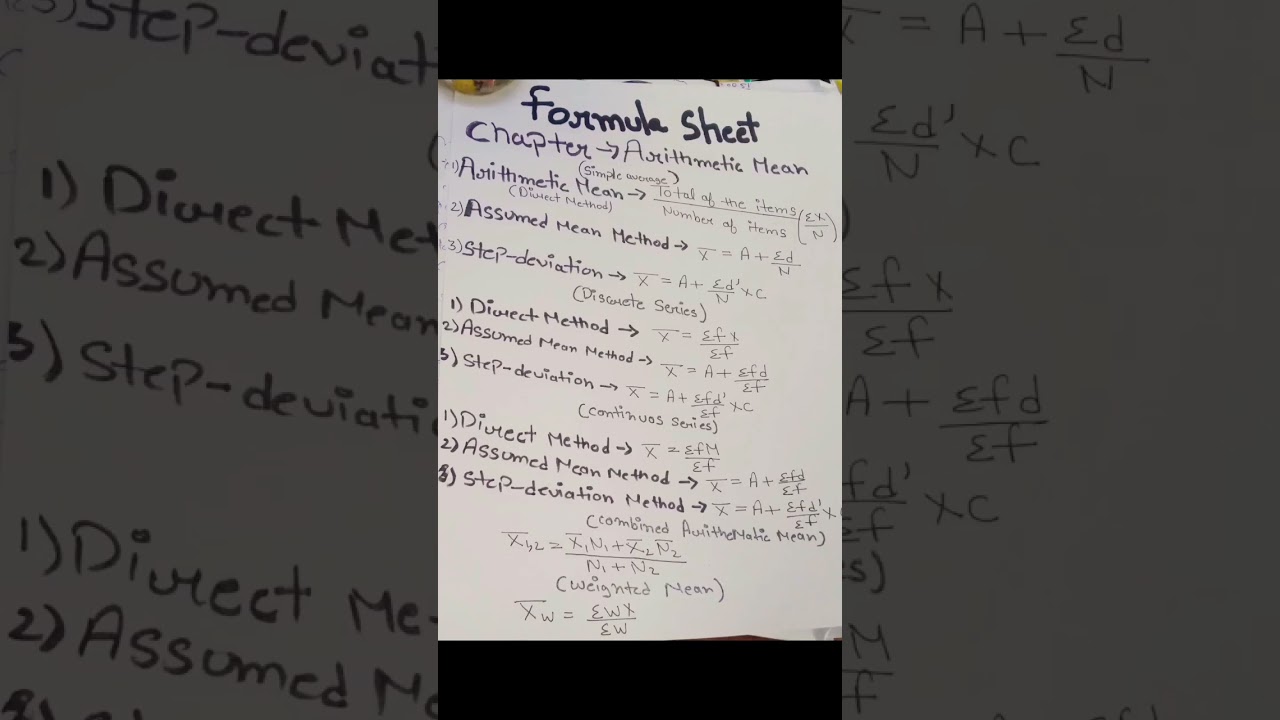 Formula Sheet
Chapter → Arithmetic Mean
(Simple average)
1) Arithmetic Mean → Total of the items / Number of items (Σx/N)
(Direct Method)
2) Assumed Mean Method → X̅ = A + Σd/N
3) Step-deviation → X̅ = A + Σd'/N × C
(Discrete Series)
1) Direct Method → X̅ = Σfx/Σf
2) Assumed Mean Method → X̅ = A + Σfd/Σf
3) Step-deviation → X̅ = A + Σfd'/Σf × C
(Continuos Series)
1) Direct Method → X̅ = ΣfM/Σf
2) Assumed Mean Method → X̅ = A + Σfd/Σf
3) Step-deviation Method → X̅ = A + Σfd'/Σf ×
(Combined Arithematic Mean)
X̅1,2 = X̅1N1 + X̅2N̅2 / N1 + N2
(Weighted Mean)
X̅w = ΣWX/ΣW